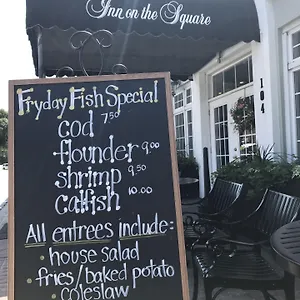 Inn on the Square
Fryday Fish Special
cod 7.50
flounder 9.00
shrimp 9.50
catfish 10.00
All entrees include:
• house salad
• fries/baked potato
• coleslaw
104